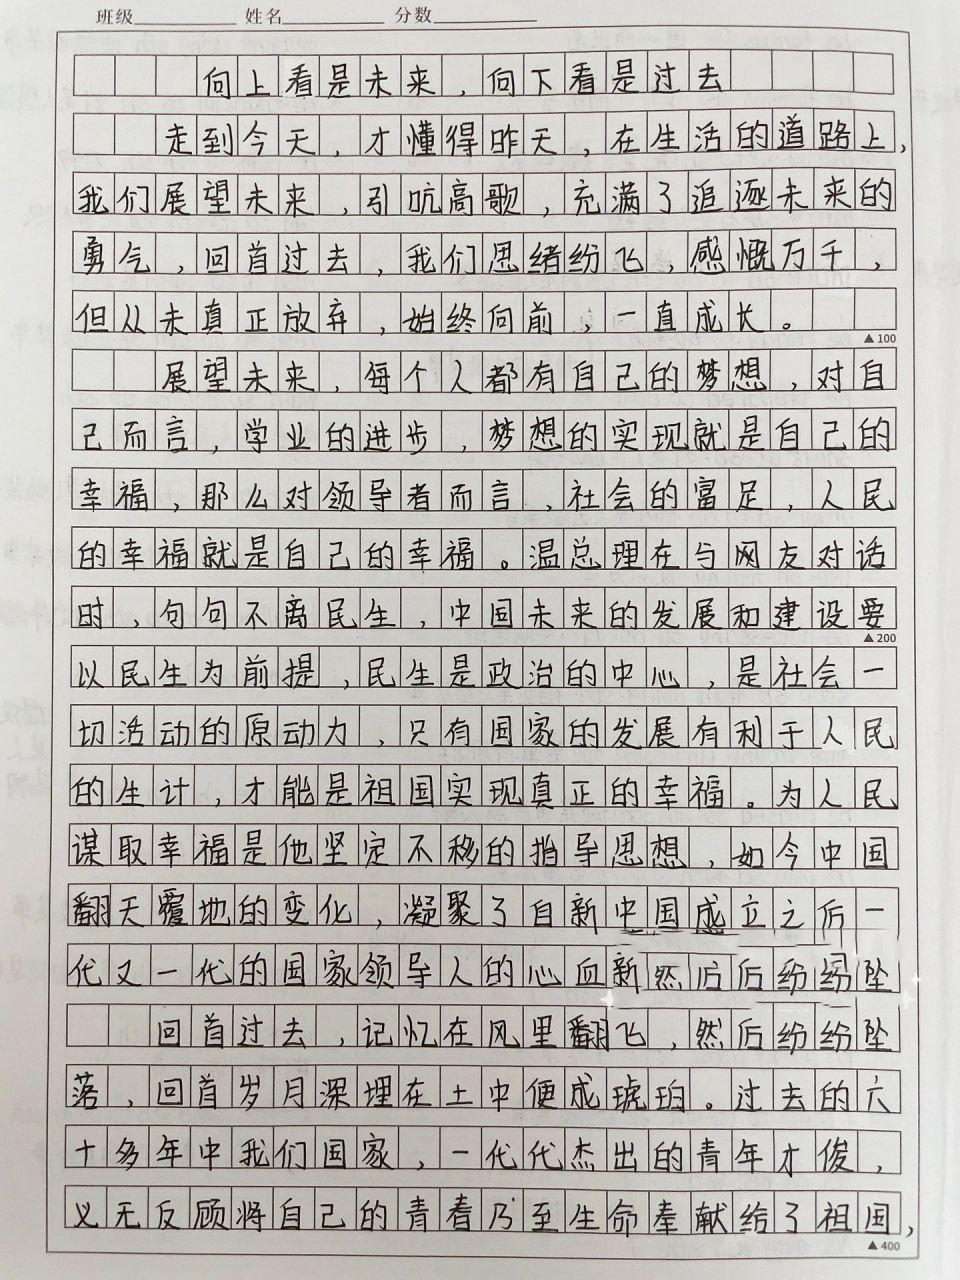 班级 姓名 分数
向上看是未来，向下看是过去
走到今天，才懂得昨天，在生活的道路上，
我们展望未来，引吭高歌，充满了追逐未来的
勇气，回首过去，我们思绪纷飞，感慨万千，
但从未真正放弃，始终向前，一直成长。
▲100
展望未来，每个人都有自己的梦想，对自
己而言，学业的进步，梦想的实现就是自己的
幸福，那么对领导者而言，社会的富足，人民
的幸福就是自己的幸福。温总理在与网友对话
时，句句不离民生，中国未来的发展和建设要
▲200
以民生为前提，民生是政治的中心，是社会一
切活动的原动力，只有国家的发展有利于人民
的生计，才能是祖国实现真正的幸福。为人民
谋取幸福是他坚定不移的指导思想，如今中国
翻天覆地的变化，凝聚了自新中国成立之后一
代又一代的国家领导人的心血新然后后纷纷坠
回首过去，记忆在风里翻飞，然后纷纷坠
落，回首岁月深埋在土中便成琥珀。过去的六
十多年中我们国家，一代代杰出的青年才俊，
义无反顾将自己的青春乃至生命奉献给了祖国，
▲400